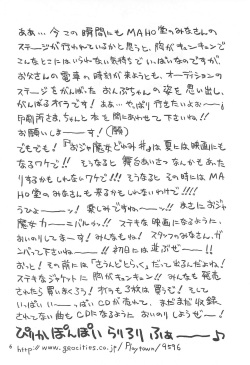 ああ… 今この瞬間にもMAHO堂のみなさんの
ステージが行われているかと思うと、胸がキュンキュンで
こんなとこにはいられない気持ちでいっぱいなのですが、
おなさんの電車の時刻が来ようとも、オーディションの
ステージをがんばった おんぷちゃんの姿を思い出し、
がんばるオイラです! ああ… やっぱり行きたいよぉーー!
印刷所さま、ちゃんと本を間にあわせて下さいね!!
お願いしまーーす! (願)
でもでも! 『おジャ魔女どれみ#』は夏には映画にも
なるワケで!! そうなると 舞台あいさつなんかもあった
りするかもしれないワケで!!! そうなるとその時にはMA
HO堂のみなさんも来るかもしれないわけで!!!!
うひょーーッ! 楽しみですねーーッ!! まさにおジャ
魔女カーーニバルかッ!! ステキな映画になるように、
おいのりしてまーす! みんなもね! スタッフのみなさん、ガ
ンバって下さいねーー!! 初日には並ぶぜーー!!
おっと! その前には「さうんどとらっく」だって出るんだよね!
ステキなジャケットに胸がキュンキュン!! みんなも発売
されたら買いおくろう! オイラも3枚は買うぞ! そして
いっぱいいっぱいCDが売れて、まだまだ収録
されてない曲もCDになるように おいのりしようぜー!
ぴりかぽんぽい らりろり ふぁーー♪
6 http://www.geocities.co.jp/Playtown/9596